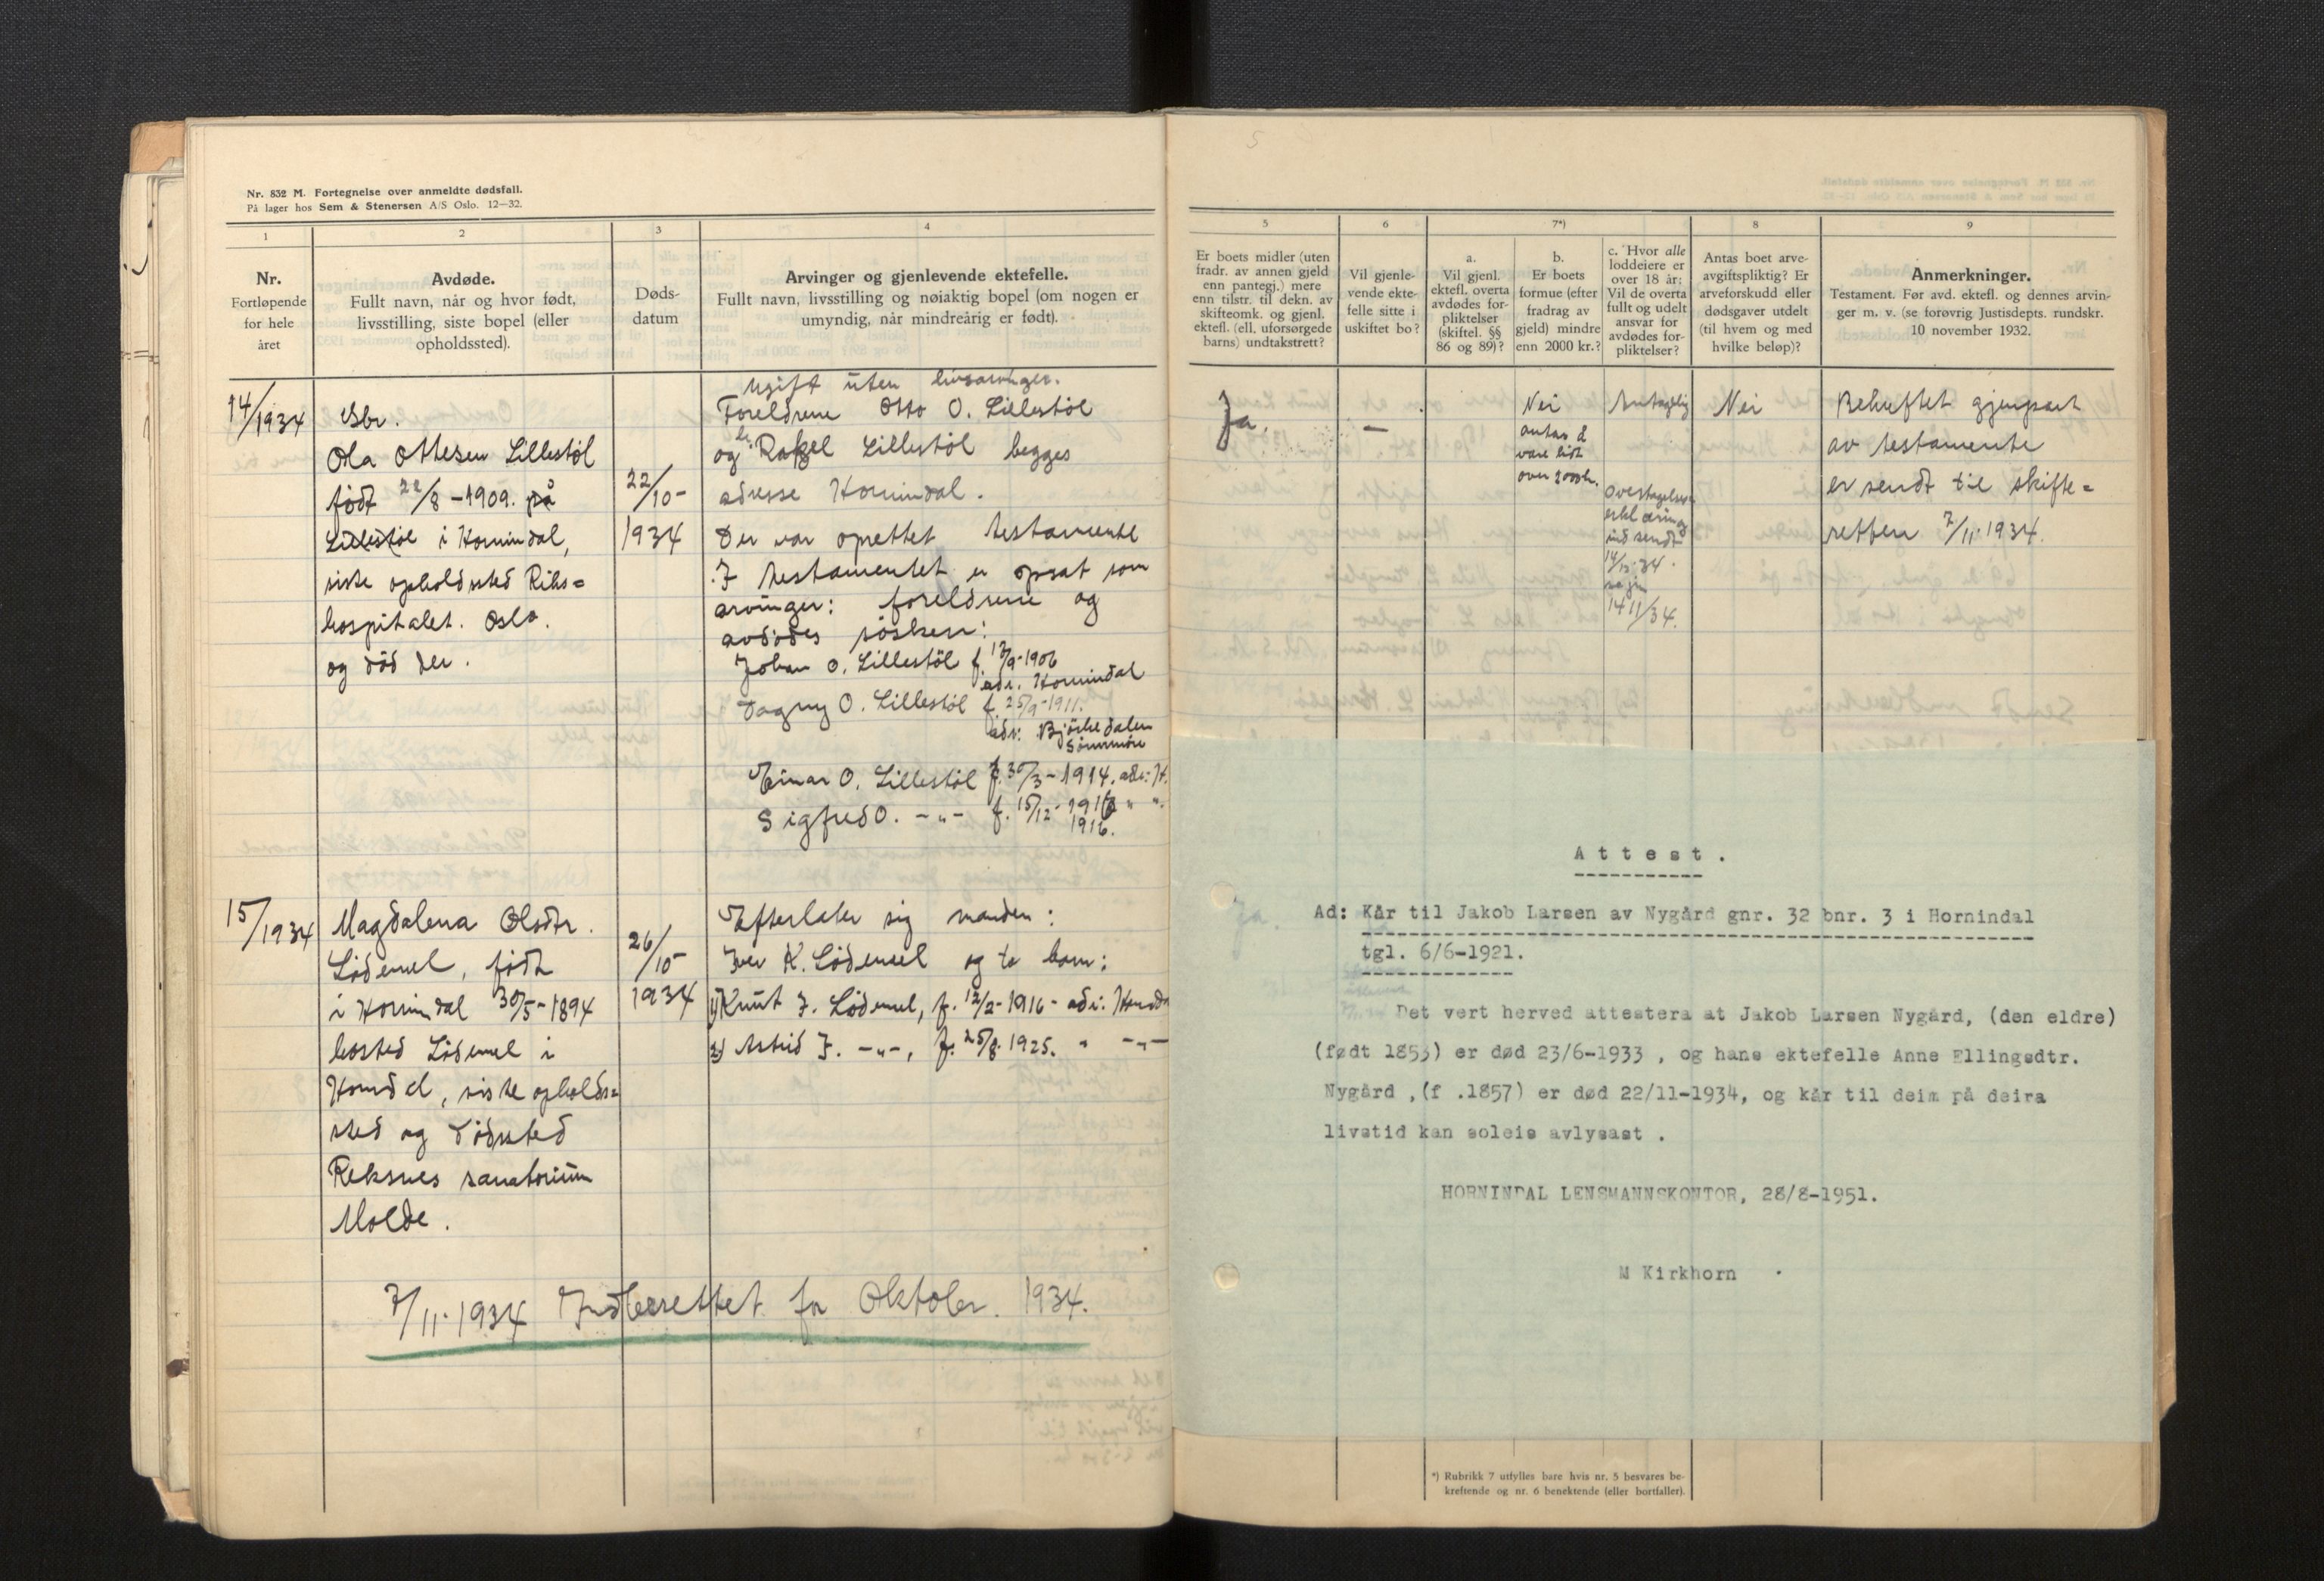 Nr. 832 M. Fortegnelse over anmeldte dødsfall.
På lager hos Sem & Stenersen A/S Oslo. 12—32.
1
2
3
4
Nr.
Fortløpende
for hele
året
Avdøde.
Fullt navn, når og hvor født,
livsstilling, siste bopel (eller
opholdssted).
Døds-
datum
Arvinger og gjenlevende ektefelle.
Fullt navn, livsstilling og nøiaktig bopel (om nogen er
umyndig, når mindreårig er født).
14/1934
Gbr.
Ola Ottesen Lillestöl
født 22/8 - 1909. på
Lillestöl i Hornindal,
siste opholdssted Riks=
hospitalet. Oslo.
og död der.
22/10-
1934
Ugift uten livsarvinger.
Foreldrene Otto O. Lillestöl
og Rakel Lillestöl begges
adresse Hornindal.
Der var oprettet testamente
I testamentet er opsat som
arvinger: foreldrene og
avdødes søsken:
Johan O. Lillestöl f. 17/9-1906
adr. Hornindal
Dagny O. Lillestöl f. 25/9-1911.
adr: Björkedalen
Sönnmöre
Einar O. Lillestöl f. 30/3-1914. adr: H.
Sigfred O. -"- f. 15/12- 1916 " "
1916.
15/1934
Magdalena Olsdtr.
Lödemel, född
i Hornindal 30/5-1894
bosted Lödemel i
Hornd.al, siste opholds=
sted og dödssted
Reknes sanatorium
Molde.
26/10-
1934
Efterlater sig manden:
Iver K. Lödemel og to barn:
1) Knut I. Lödemel, f. 12/2-1916- adr: Hornd.
2) Astrid I. -"-, f. 25/8. 1925. " -"-
7/11.1934 Indberettet for Oktober. 1934.
5
6
7*)
8
9
Er boets midler (uten
fradr. av annen gjeld
enn pantegj.) mere
enn tilstr. til dekn. av
skifteomk. og gjenl.
ektefl. (ell. uforsørgede
barns) undtakstrett?
Vil gjenle-
vende ekte-
felle sitte i
uskiftet bo?
a.
Vil gjenl.
ektefl. overta
avdødes for-
pliktelser
(skiftel. §§
86 og 89)?
b.
Er boets
formue (efter
fradrag av
gjeld) mindre
enn 2000 kr.?
c. Hvor alle
loddeiere er
over 18 år:
Vil de overta
fullt og udelt
ansvar for
avdødes for-
pliktelser?
Antas boet arve-
avgiftspliktig? Er
arveforskudd eller
dødsgaver utdelt
(til hvem og med
hvilke beløp)?
Anmerkninger.
Testament. Før avd. ektefl. og dennes arvin-
ger m. v. (se forøvrig Justisdepts. rundskr.
10 november 1932.
Ja.
—
Nei
antas å
være lidt
over 2000 kr.
Antagelig
Overtagelses
erklæring
indsendt
14/11/34.
Nei
Bekreftet gjenpart
av testamente
er sendt til skifte=
retten 7/11.1934.
Attest.
Ad: Kår til Jakob Larsen av Nygård gnr. 32 bnr. 3 i Hornindal
tgl. 6/6-1921.
Det vert herved attestera at Jakob Larsen Nygård, (den eldre)
(født 1853) er død 23/6-1933 , og hans ektefelle Anne Ellingsdtr.
Nygård ,(f .1857) er død 22/11-1934, og kår til deim på deira
livstid kan soleis avlysast .
HORNINDAL LENSMANNSKONTOR, 28/8-1951.
M Kirkhorn
*) Rubrikk 7 utfylles bare hvis nr. 5 besvares be-
kreftende og nr. 6 benektende (eller bortfaller).